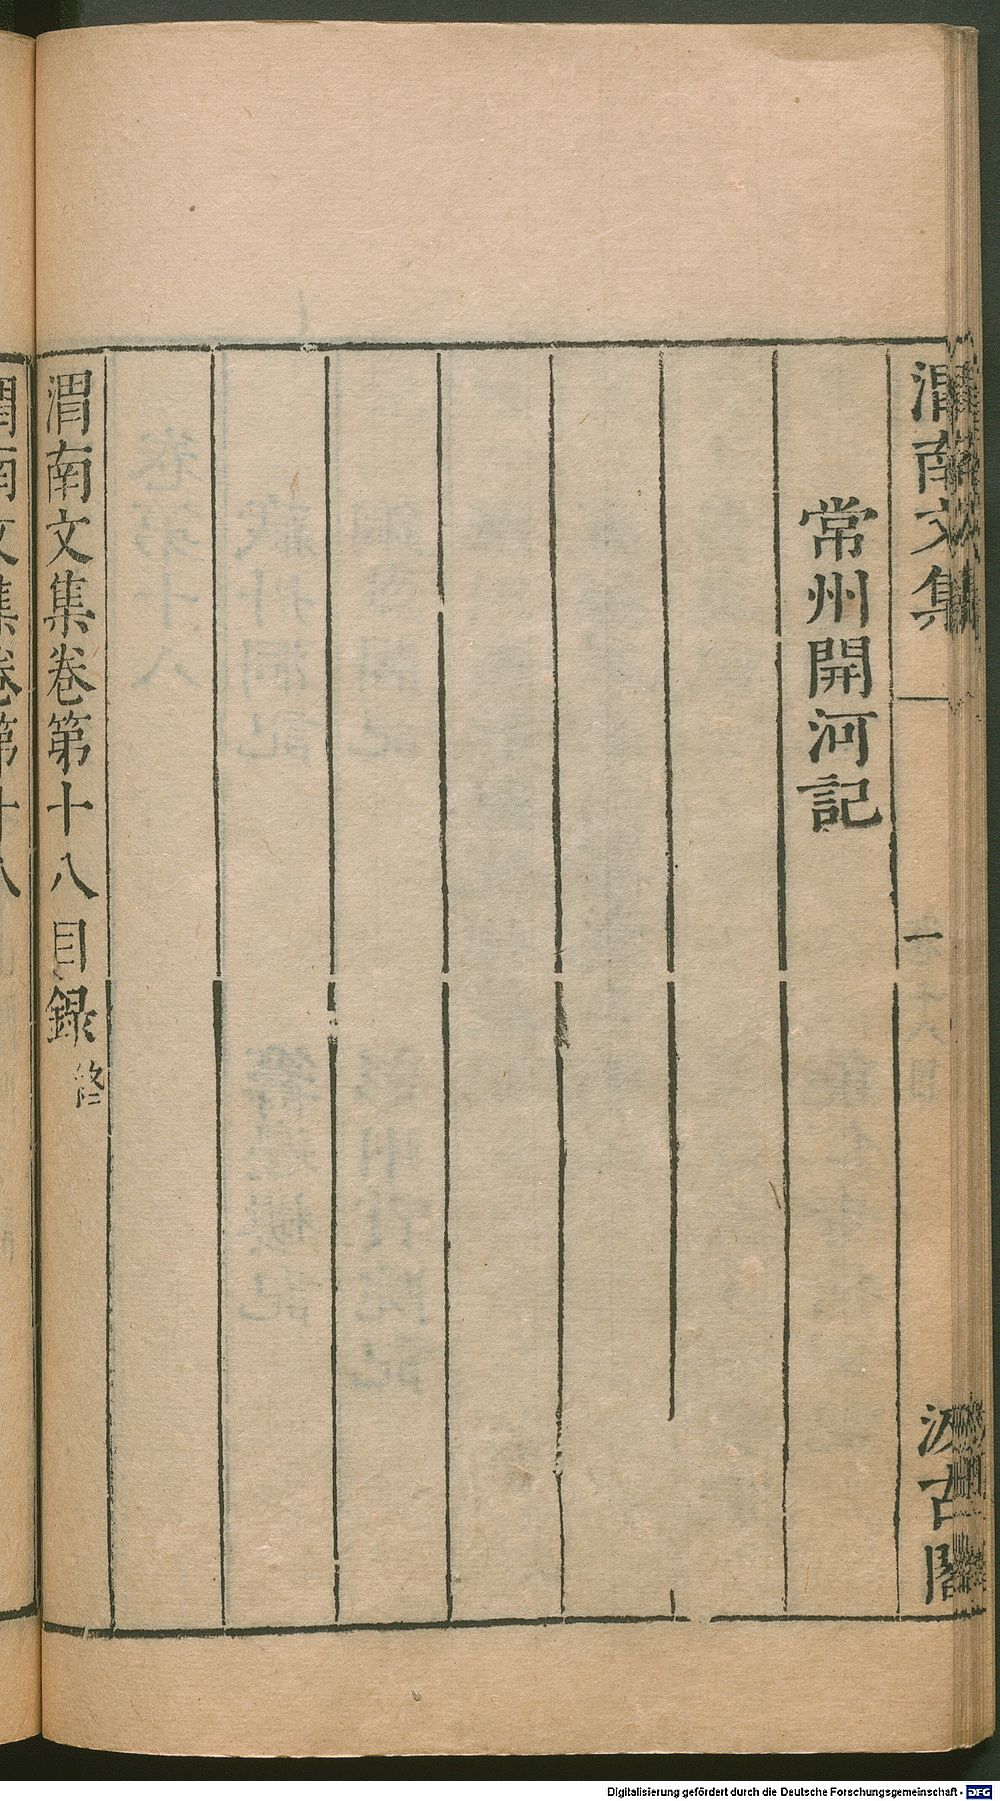 渭南文集
一
汲古閣
常州開河記
渭南文集卷第十八目錄
終
Digitalisierung gefördert durch die Deutsche Forschungsgemeinschaft - DFG